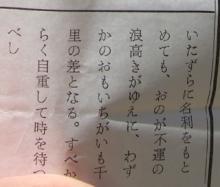 いたずらに名利をもと
めても、おのが不運の
浪高きがゆえに、わず
かのおもいちがいも千
里の差となる。すべか
らく自重して時を待つ
べし